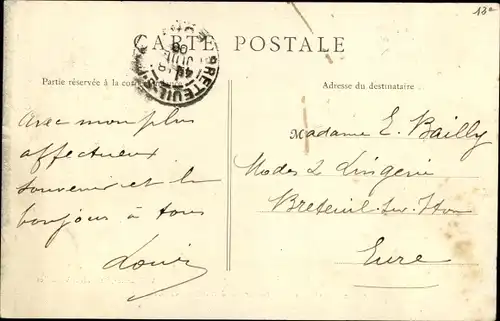 13e
CARTE POSTALE
BRETEUIL-S
JUIL
08
Partie réservée à la
Adresse du destinataire.
Avec mon plus
affectueux
souvenir et le
bonjour à tous
Louis
Madame E. Bailly
Modes & Lingerie
Breteuil-sur-Iton
Eure